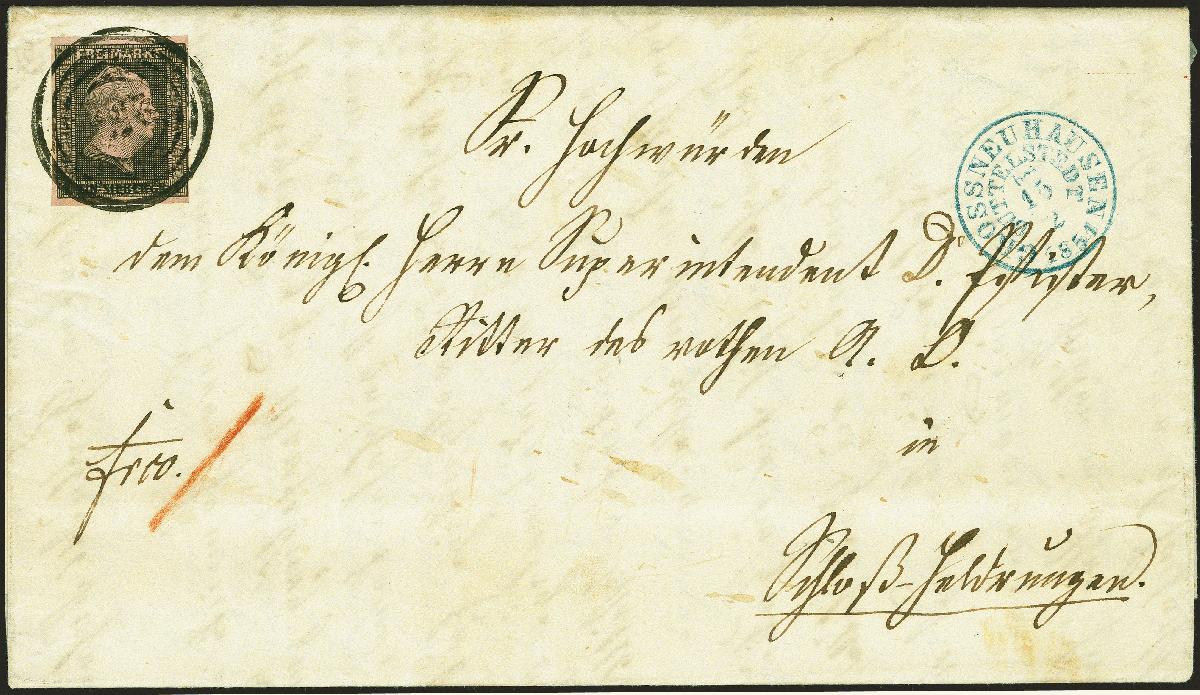 FREIMARKE
Sr. Hochwürden
dem Königl. Herrn Superintendent D.
Ritter des rothen A. O.
in
Schloß-Heldrungen.
frco.
NEUHAUSEN
BUTTELSTEDT
15
2
1851